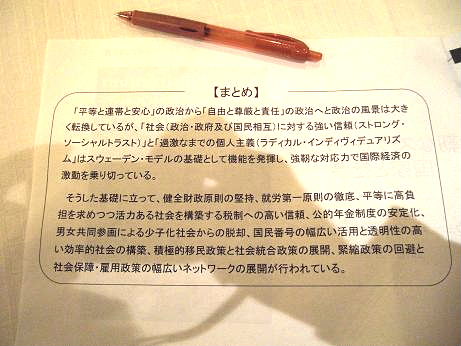 【まとめ】
「平等と連帯と安心」の政治から「自由と尊厳と責任」の政治へと政治の風景は大き
く転換しているが、「社会（政治・政府及び国民相互）に対する強い信頼（ストロング・
ソーシャルトラスト）」と「過激なまでの個人主義（ラディカル・インディヴィデュアリズ
ム」はスウェーデン・モデルの基礎として機能を発揮し、強靭な対応力で国際経済の
激動を乗り切っている。
そうした基礎に立って、健全財政原則の堅持、就労第一原則の徹底、平等に高負
担を求めつつ活力ある社会を構築する税制への高い信頼、公的年金制度の安定化、
男女共同参画による少子化社会からの脱却、国民番号の幅広い活用と透明性の高
い効率的社会の構築、積極的移民政策と社会統合政策の展開、緊縮政策の回避と
社会保障・雇用政策の幅広いネットワークの展開が行われている。